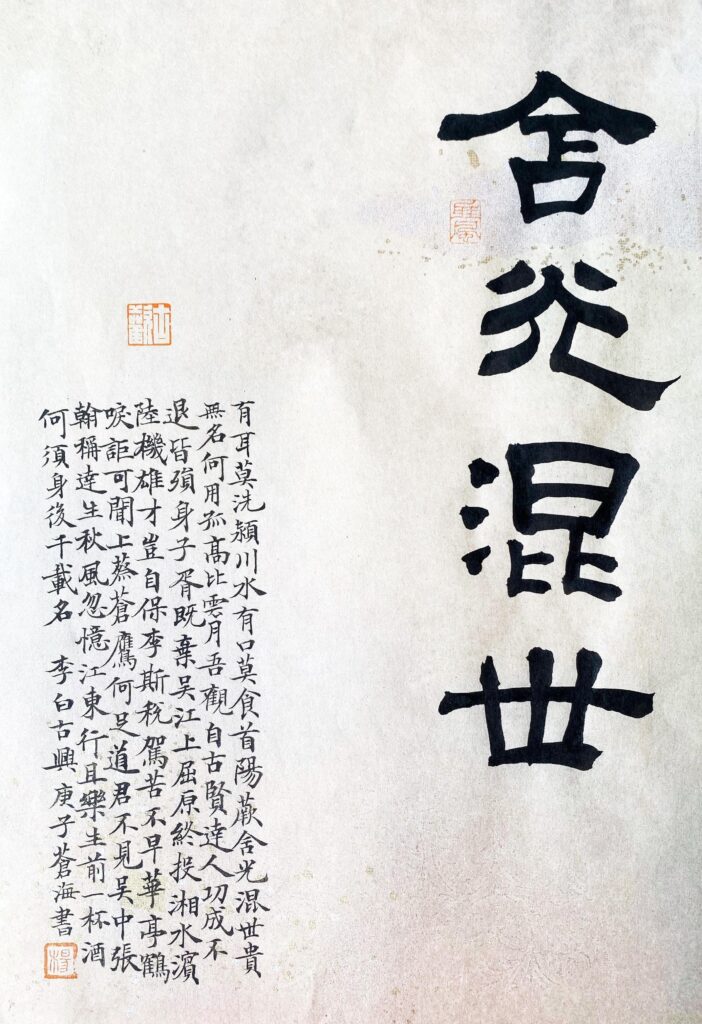 舍光混世
有耳莫洗潁川水有口莫食首陽蕨舍光混世貴
無名何用孤高比雲月吾觀自古賢達人功成不
退皆殞身子胥既棄吴江上屈原終投湘水濱
陸機雄才豈自保李斯稅駕苦不早華亭鶴
唳詎可聞上蔡蒼鷹何足道君不見吴中張
翰稱達生秋風忽憶江東行且樂生前一杯酒
何須身後千載名 李白古興庚子蒼海書